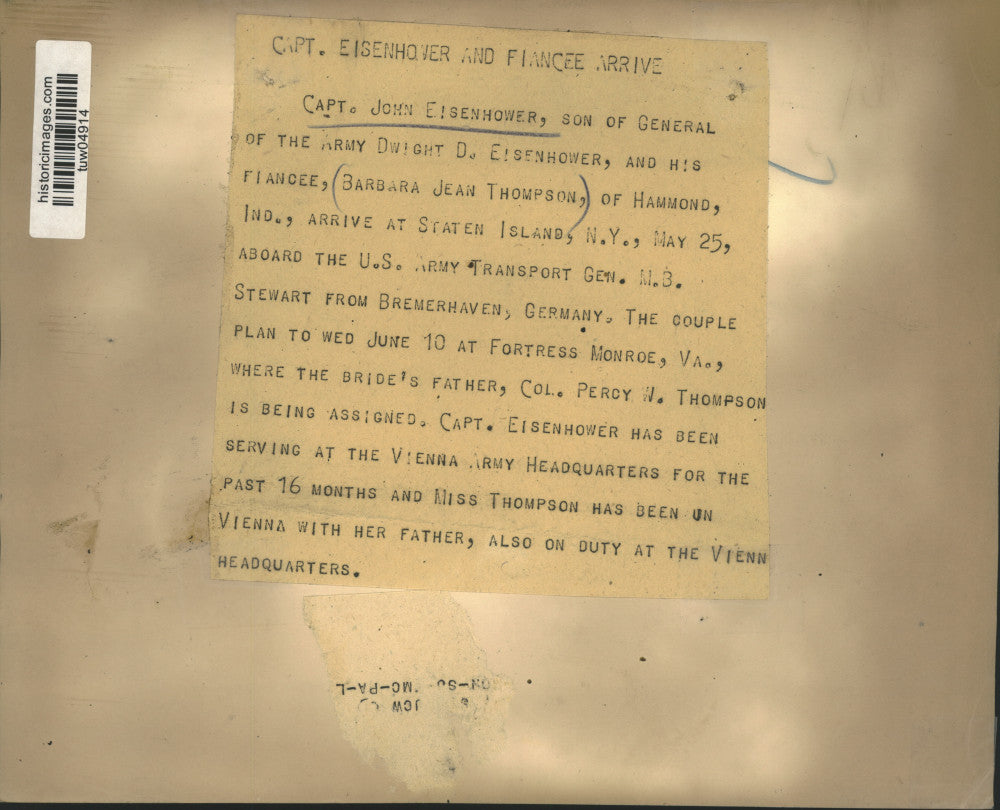 historicimages.com
tuw04914
CAPT. EISENHOWER AND FIANCEE ARRIVE
CAPT. JOHN EISENHOWER, SON OF GENERAL
OF THE ARMY DWIGHT D. EISENHOWER, AND HIS
FIANCEE, (BARBARA JEAN THOMPSON,) OF HAMMOND,
IND., ARRIVE AT STATEN ISLAND, N.Y., MAY 25,
ABOARD THE U.S. ARMY TRANSPORT GEN. M.B.
STEWART FROM BREMERHAVEN, GERMANY. THE COUPLE
PLAN TO WED JUNE 10 AT FORTRESS MONROE, VA.,
WHERE THE BRIDE'S FATHER, COL. PERCY W. THOMPSON
IS BEING ASSIGNED. CAPT. EISENHOWER HAS BEEN
SERVING AT THE VIENNA ARMY HEADQUARTERS FOR THE
PAST 16 MONTHS AND MISS THOMPSON HAS BEEN UN
VIENNA WITH HER FATHER, ALSO ON DUTY AT THE VIENN
HEADQUARTERS.
JCW
MC-PA-L